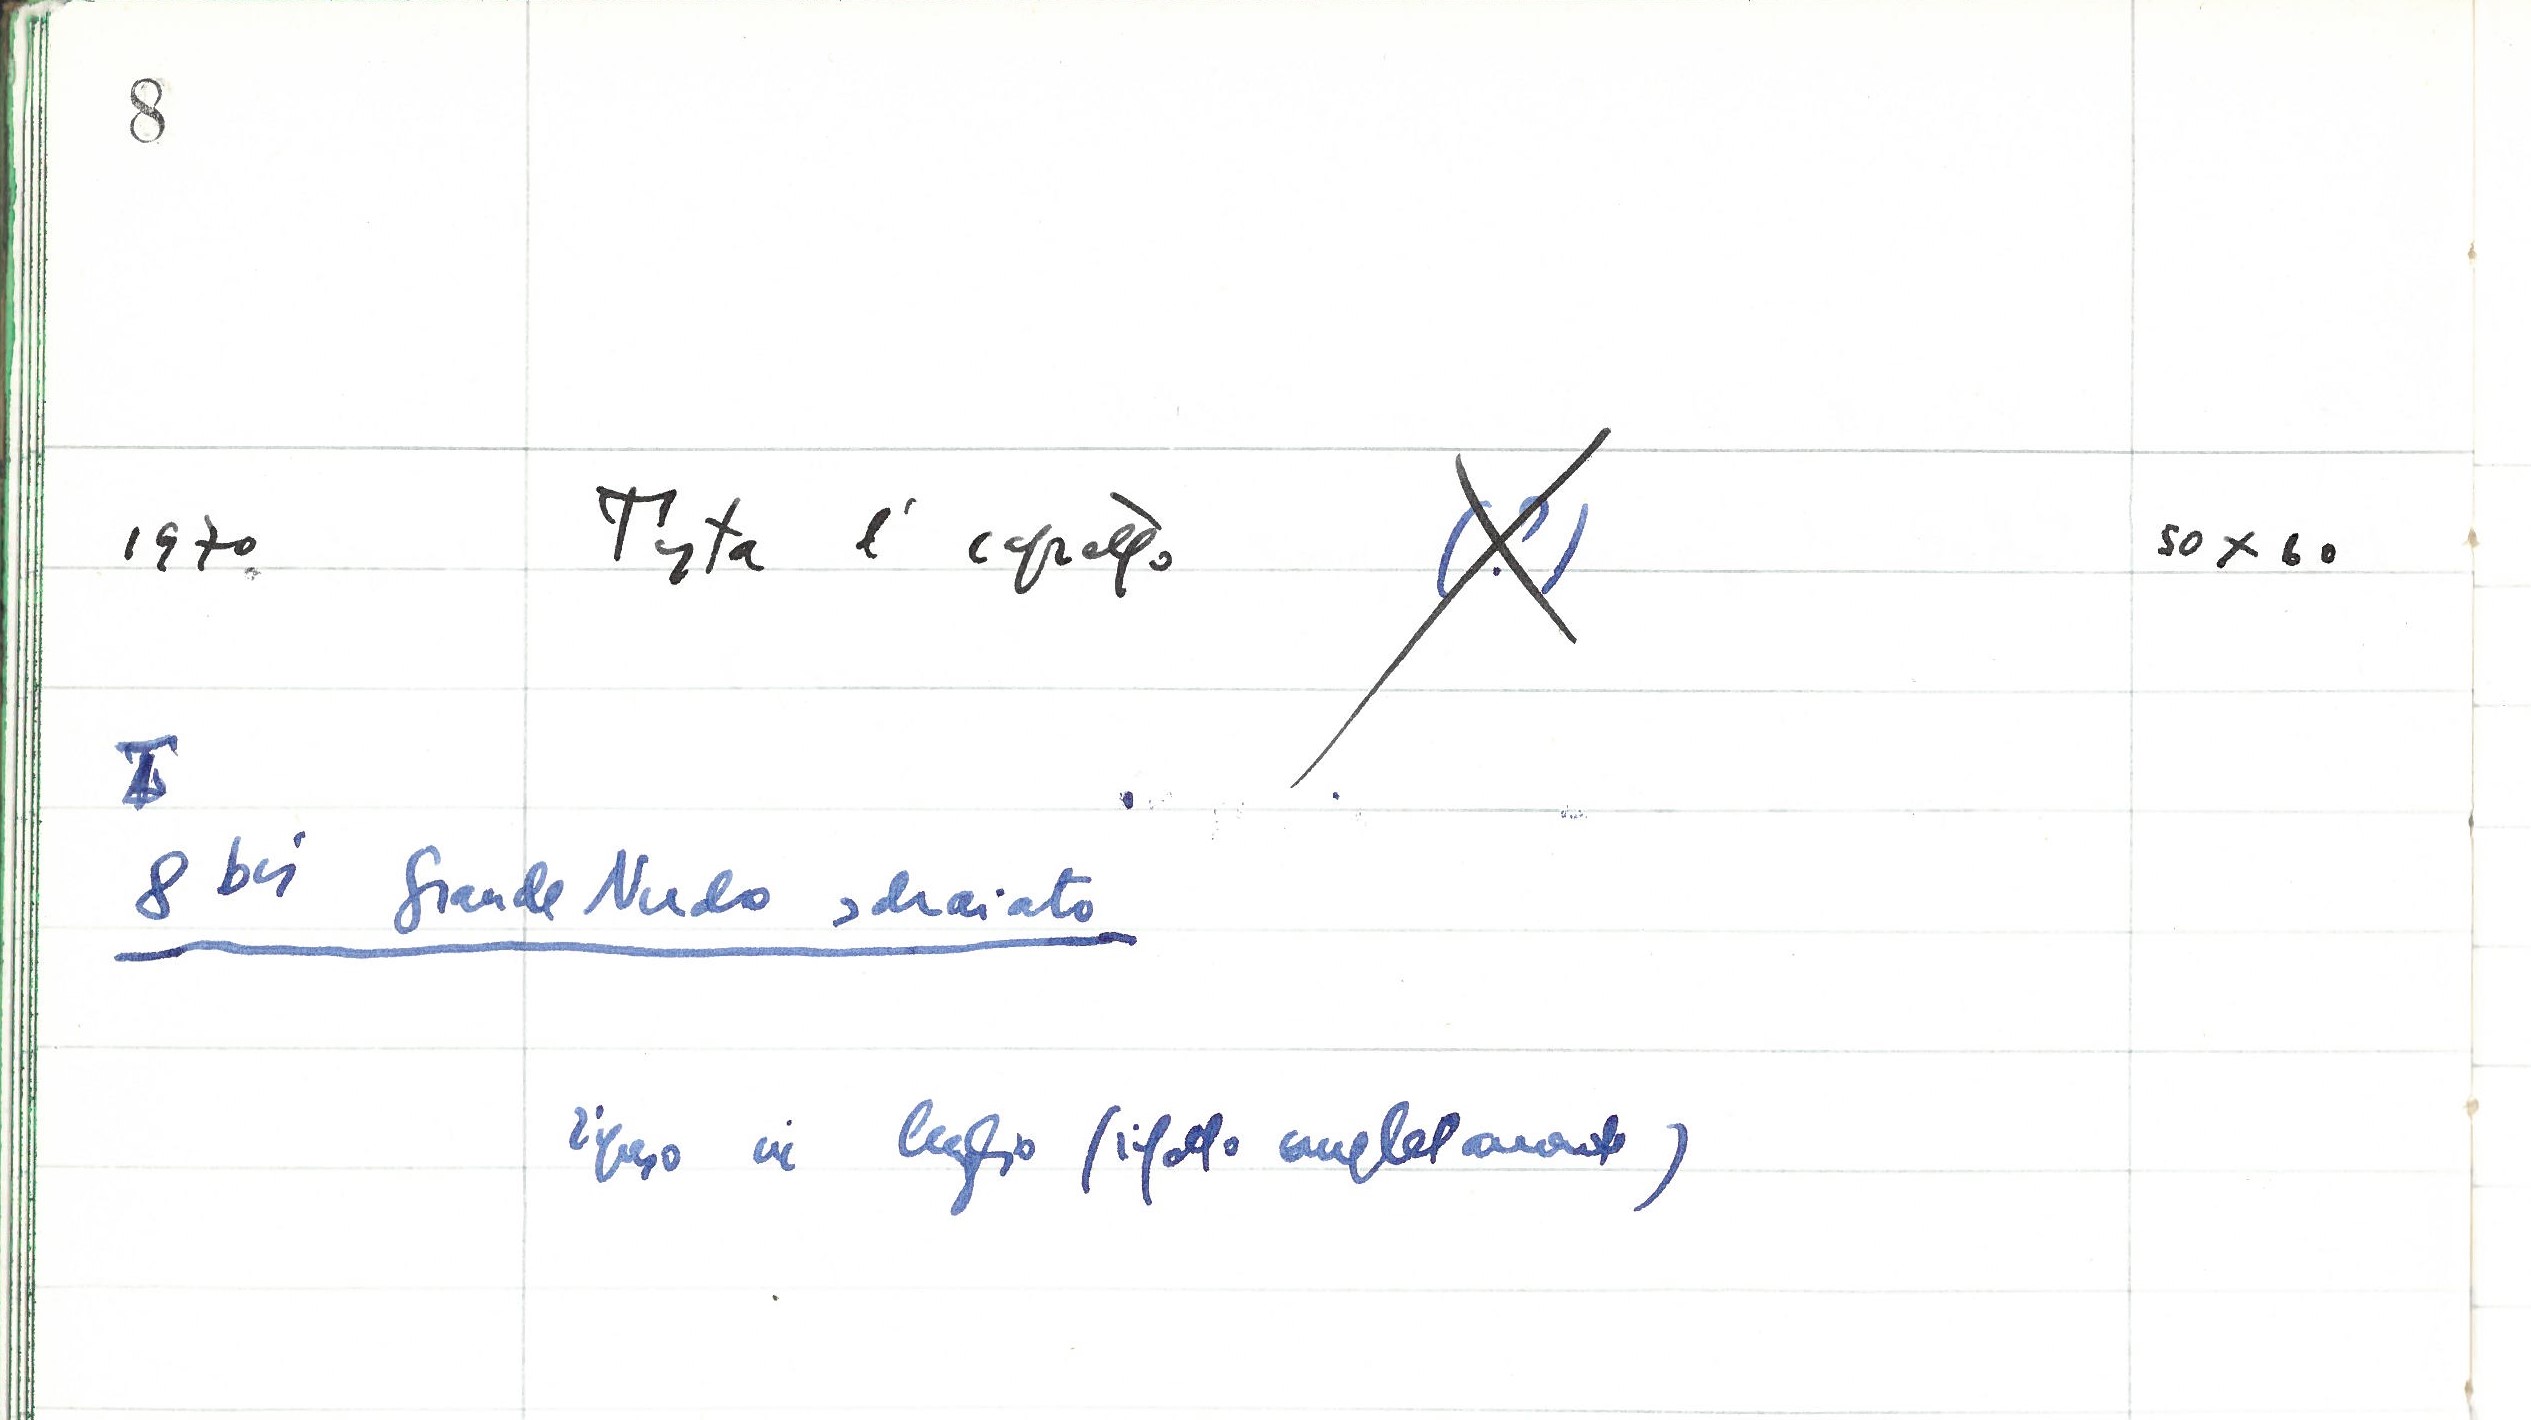 8
1970. Testa e cavallo (?) 50 x 60
8 bis Grande Nudo sdraiato
ripreso in luglio (rifatto completamente)